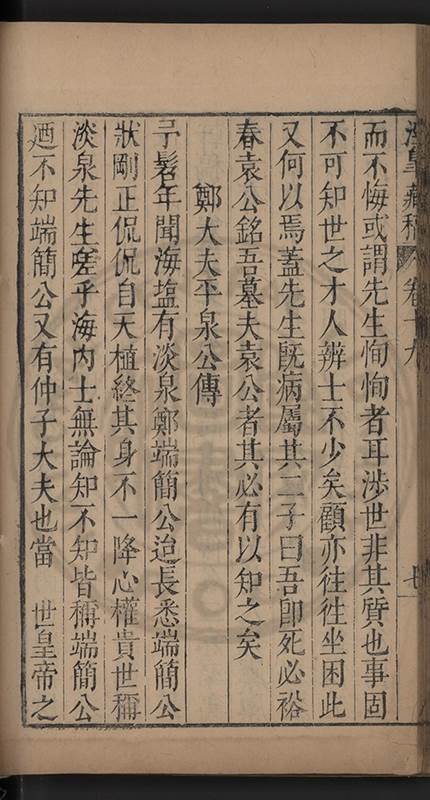 漪皇藏稿 卷十九 七
而不悔或謂先生恂恂者耳涉世非其質也事固
不可知世之才人辨士不少矣顧亦往徃坐困此
又何以焉蓋先生旣病屬其二子曰吾卽死必裕
春袁公銘吾墓夫袁公者其必有以知之矣
鄭大夫平泉公傳
予髫年聞海塩有淡泉鄭端簡公迨長悉端簡公
狀剛正侃侃自天植終其身不一降心權貴世稱
淡泉先生嗟乎海內士無論知不知皆稱端簡公
迺不知端簡公又有仲子大夫也當 世皇帝之